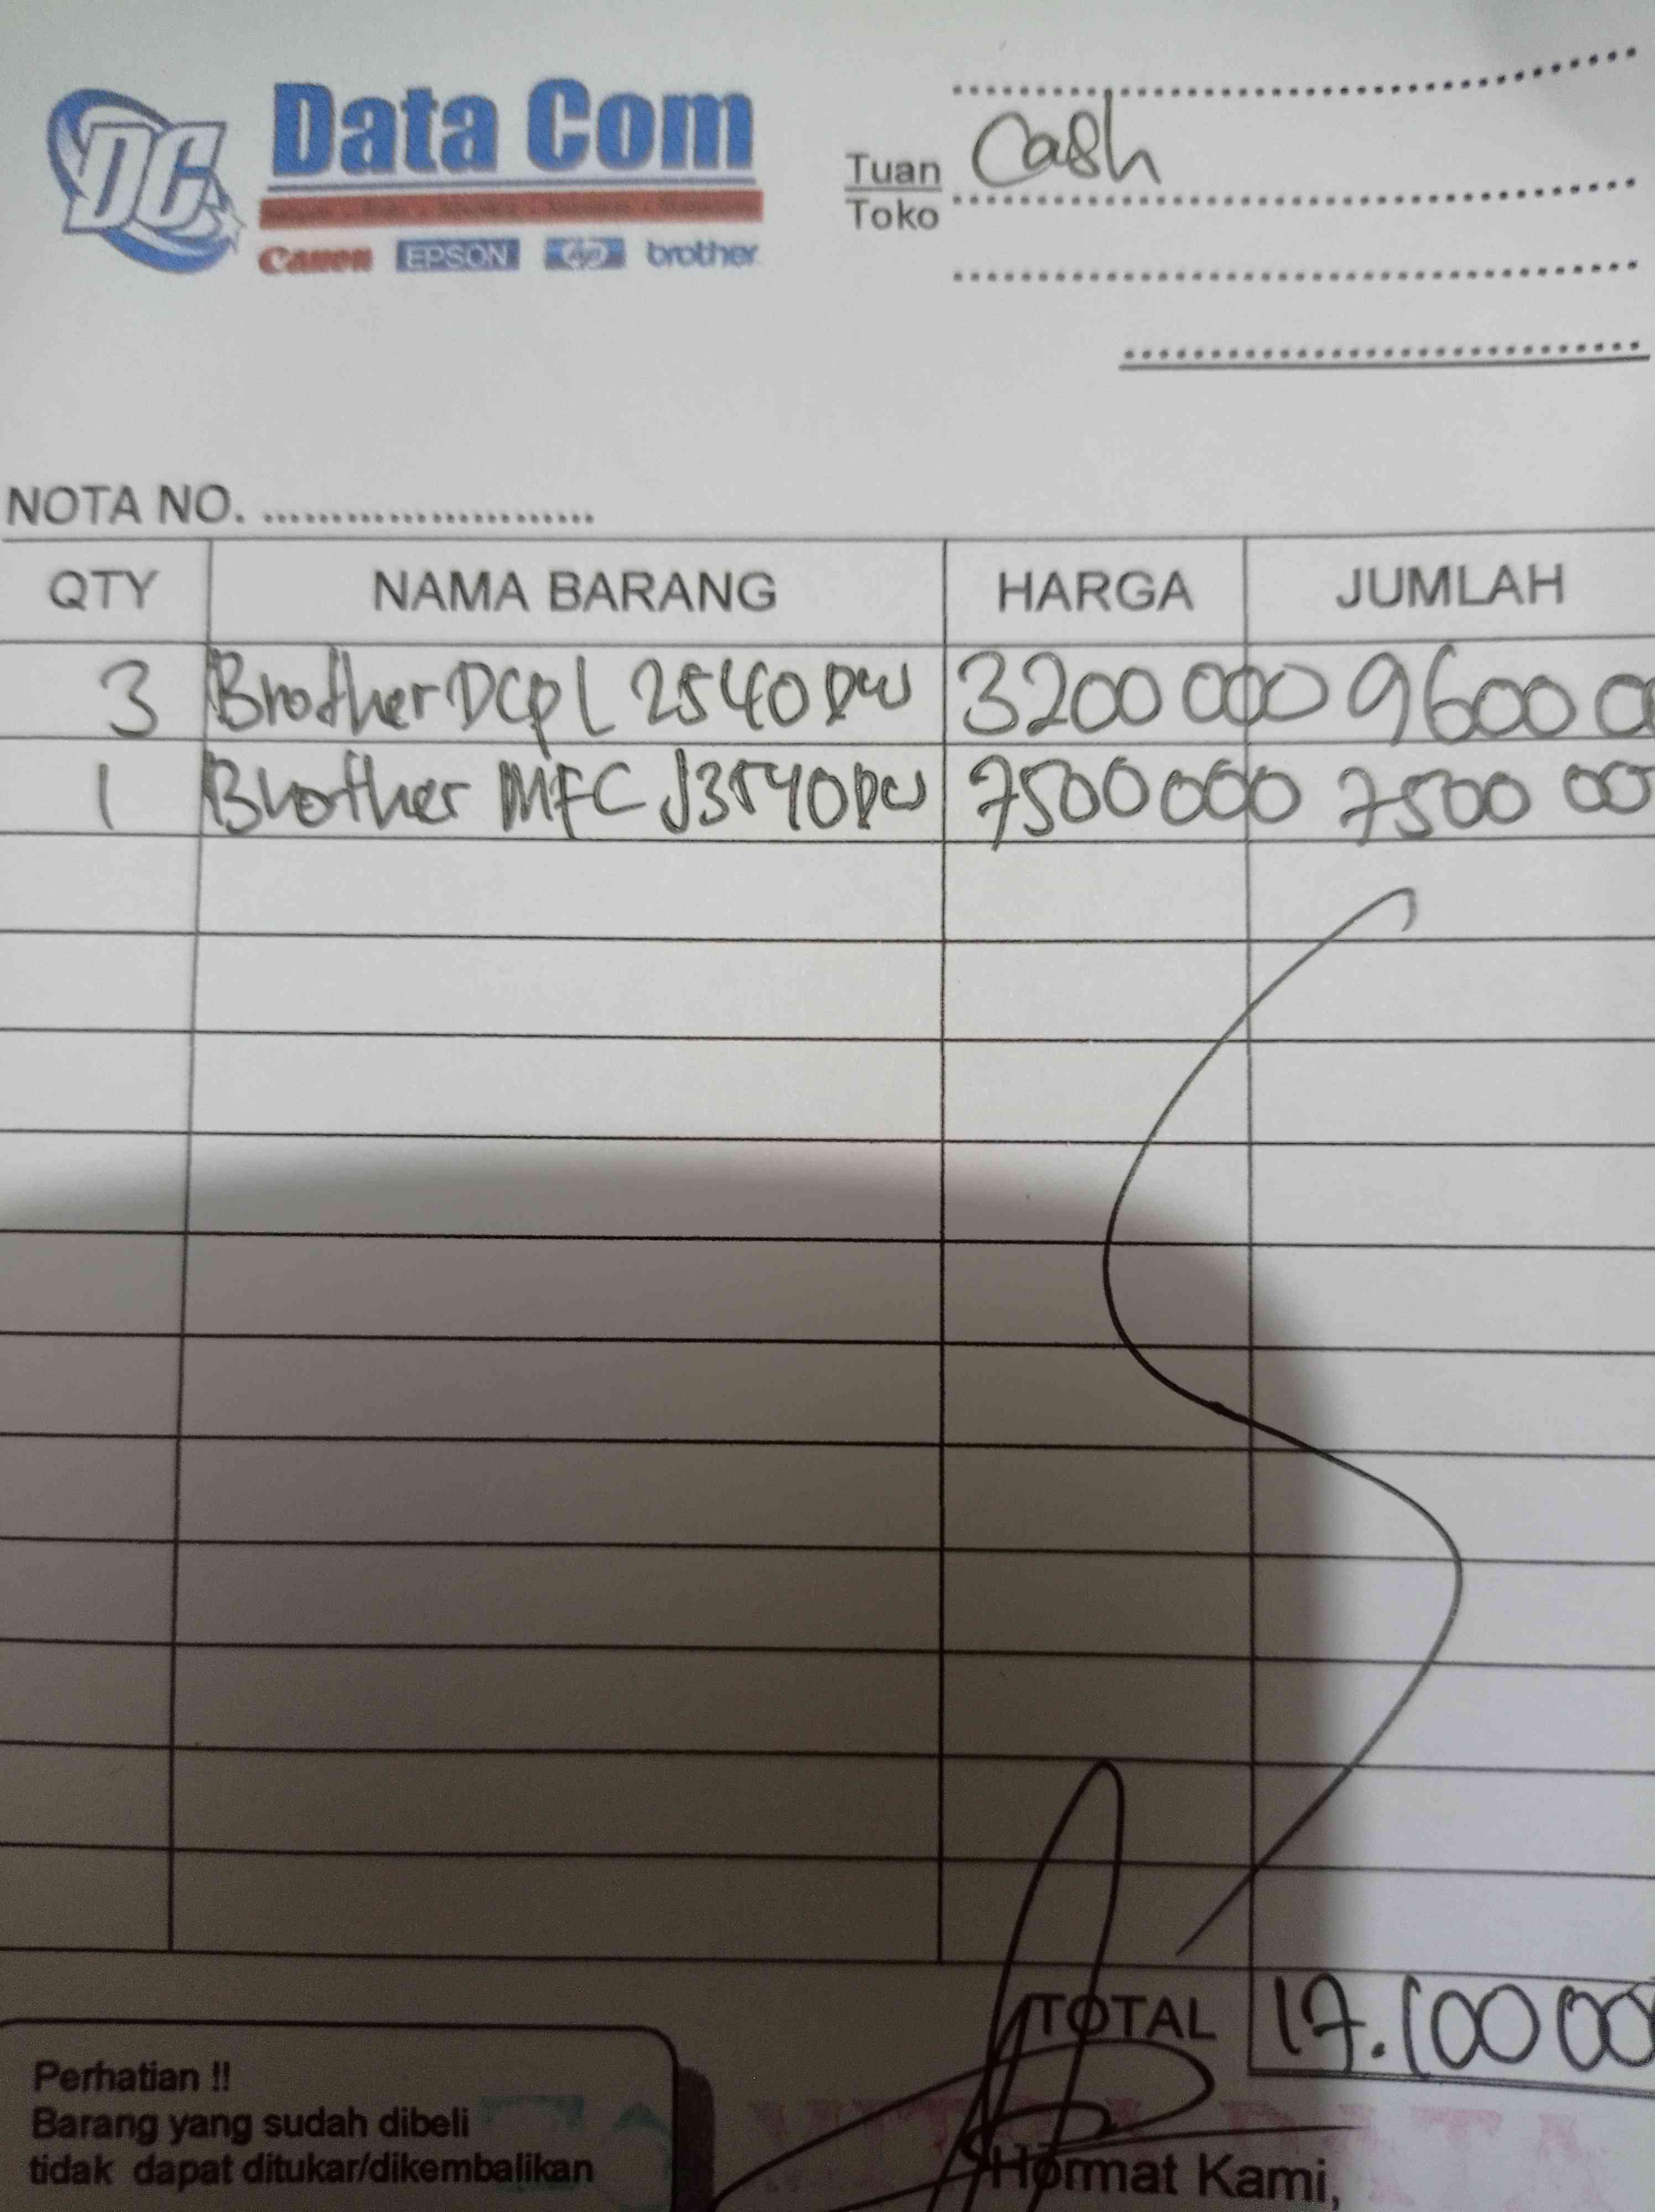 DC Data Com
Canon EPSON hp brother
Tuan Cash
Toko
NOTA NO.
QTY NAMA BARANG HARGA JUMLAH
3 Brother DCP L 2540 DW 3200 000 9600 00
1 Brother MFC J3540DW 7500 000 7500 00
TOTAL 17.100 00
Perhatian !!
Barang yang sudah dibeli
tidak dapat ditukar/dikembalikan
Hormat Kami,